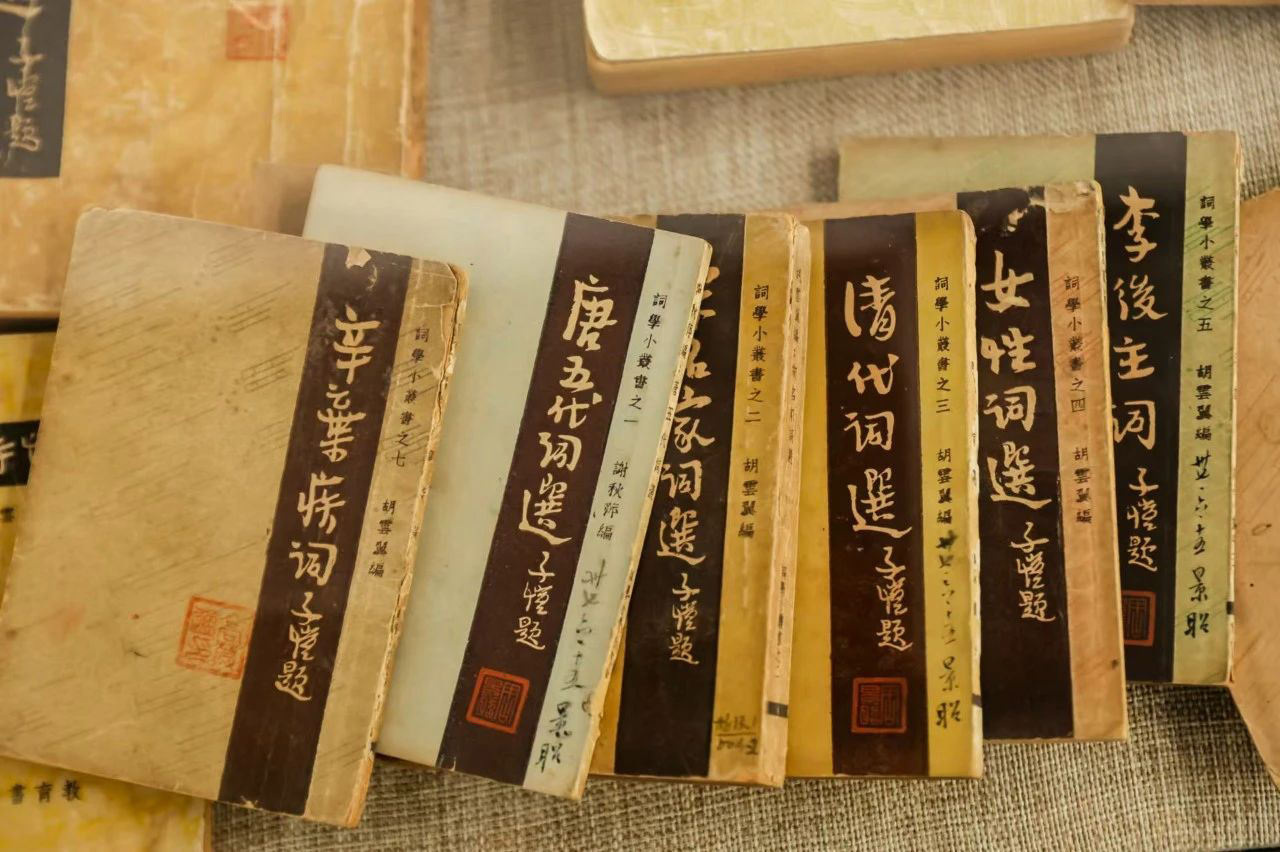 子愷題
辛棄疾詞 子愷題
詞學小叢書之七 胡雲翼編
唐五代詞選 子愷題
詞學小叢書之一 謝秋萍編
卅七·六·十五 景昭
名家詞選 子愷題
詞學小叢書之二 胡雲翼編
清代詞選 子愷題
詞學小叢書之三 胡雲翼編
卅七·六·十五 景昭
女性詞選 子愷題
詞學小叢書之四 胡雲翼編
李後主詞 子愷題
詞學小叢書之五 胡雲翼編
卅七·六·十五 景昭
教育書